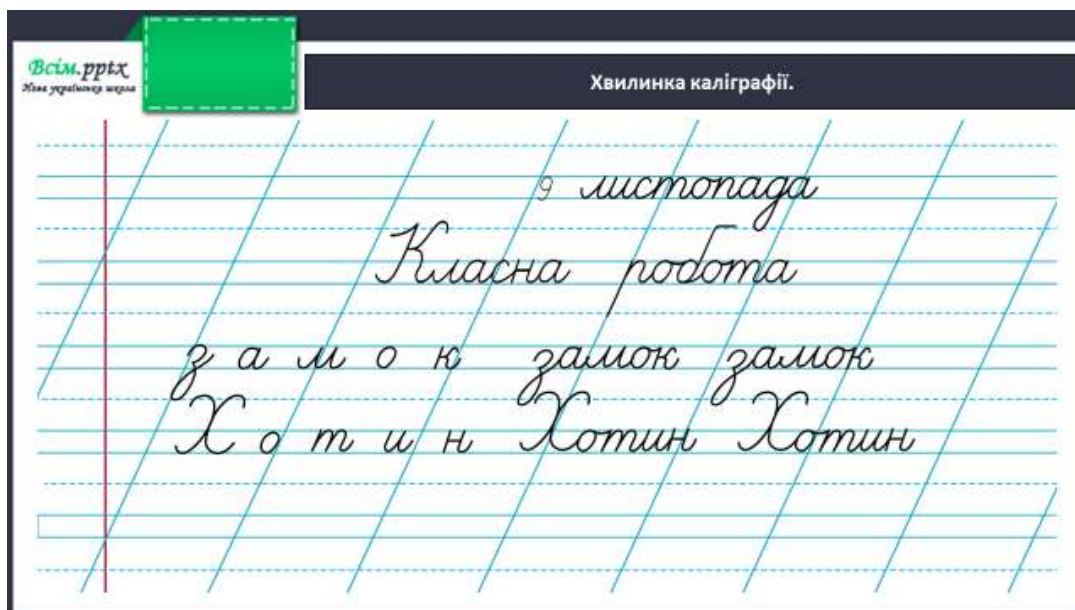 Всім.pptx
Нова українська школа
Хвилинка каліграфії.
9 листопада
Класна робота
з а м о к замок замок
Х о т и н Хотин Хотин